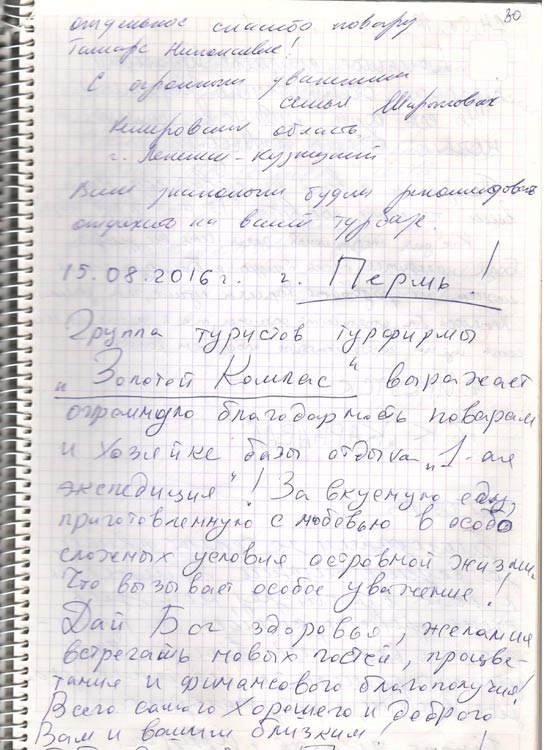 30
отдельное спасибо повару
Тамаре Николаевне!
С огромным уважением
семья
Кемеровская область
г. Ленинск-Кузнецкий
Всем знакомым будем рекомендовать
отдыхать на вашей турбазе.
15.08.2016г. г. Пермь!
Группа туристов турфирмы
"Золотой Компас" выражает
огромную благодарность поварам
и хозяйке базы отдыха "1-ая
экспедиция"! За вкусную еду,
приготовленную с любовью в особо
сложных условия островной жизни.
Что вызывает особое уважение!
Дай Бог здоровья, желания
встречать новых гостей, процве-
тания и финансового благополучия!
Всего самого Хорошего и Доброго
Вам и вашим близким!